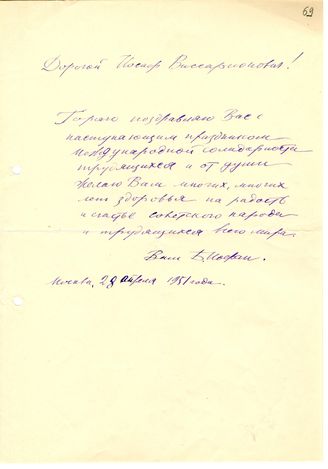 69
Дорогой Иосиф Виссарионович!
Горячо поздравляю Вас с
наступающим праздником
международной солидарности
трудящихся и от души
желаю Вам многих, многих
лет здоровья на радость
и счастье советского народа
и трудящихся всего мира.
Ваш Б. Иофан.
Москва, 29 апреля 1951 года.